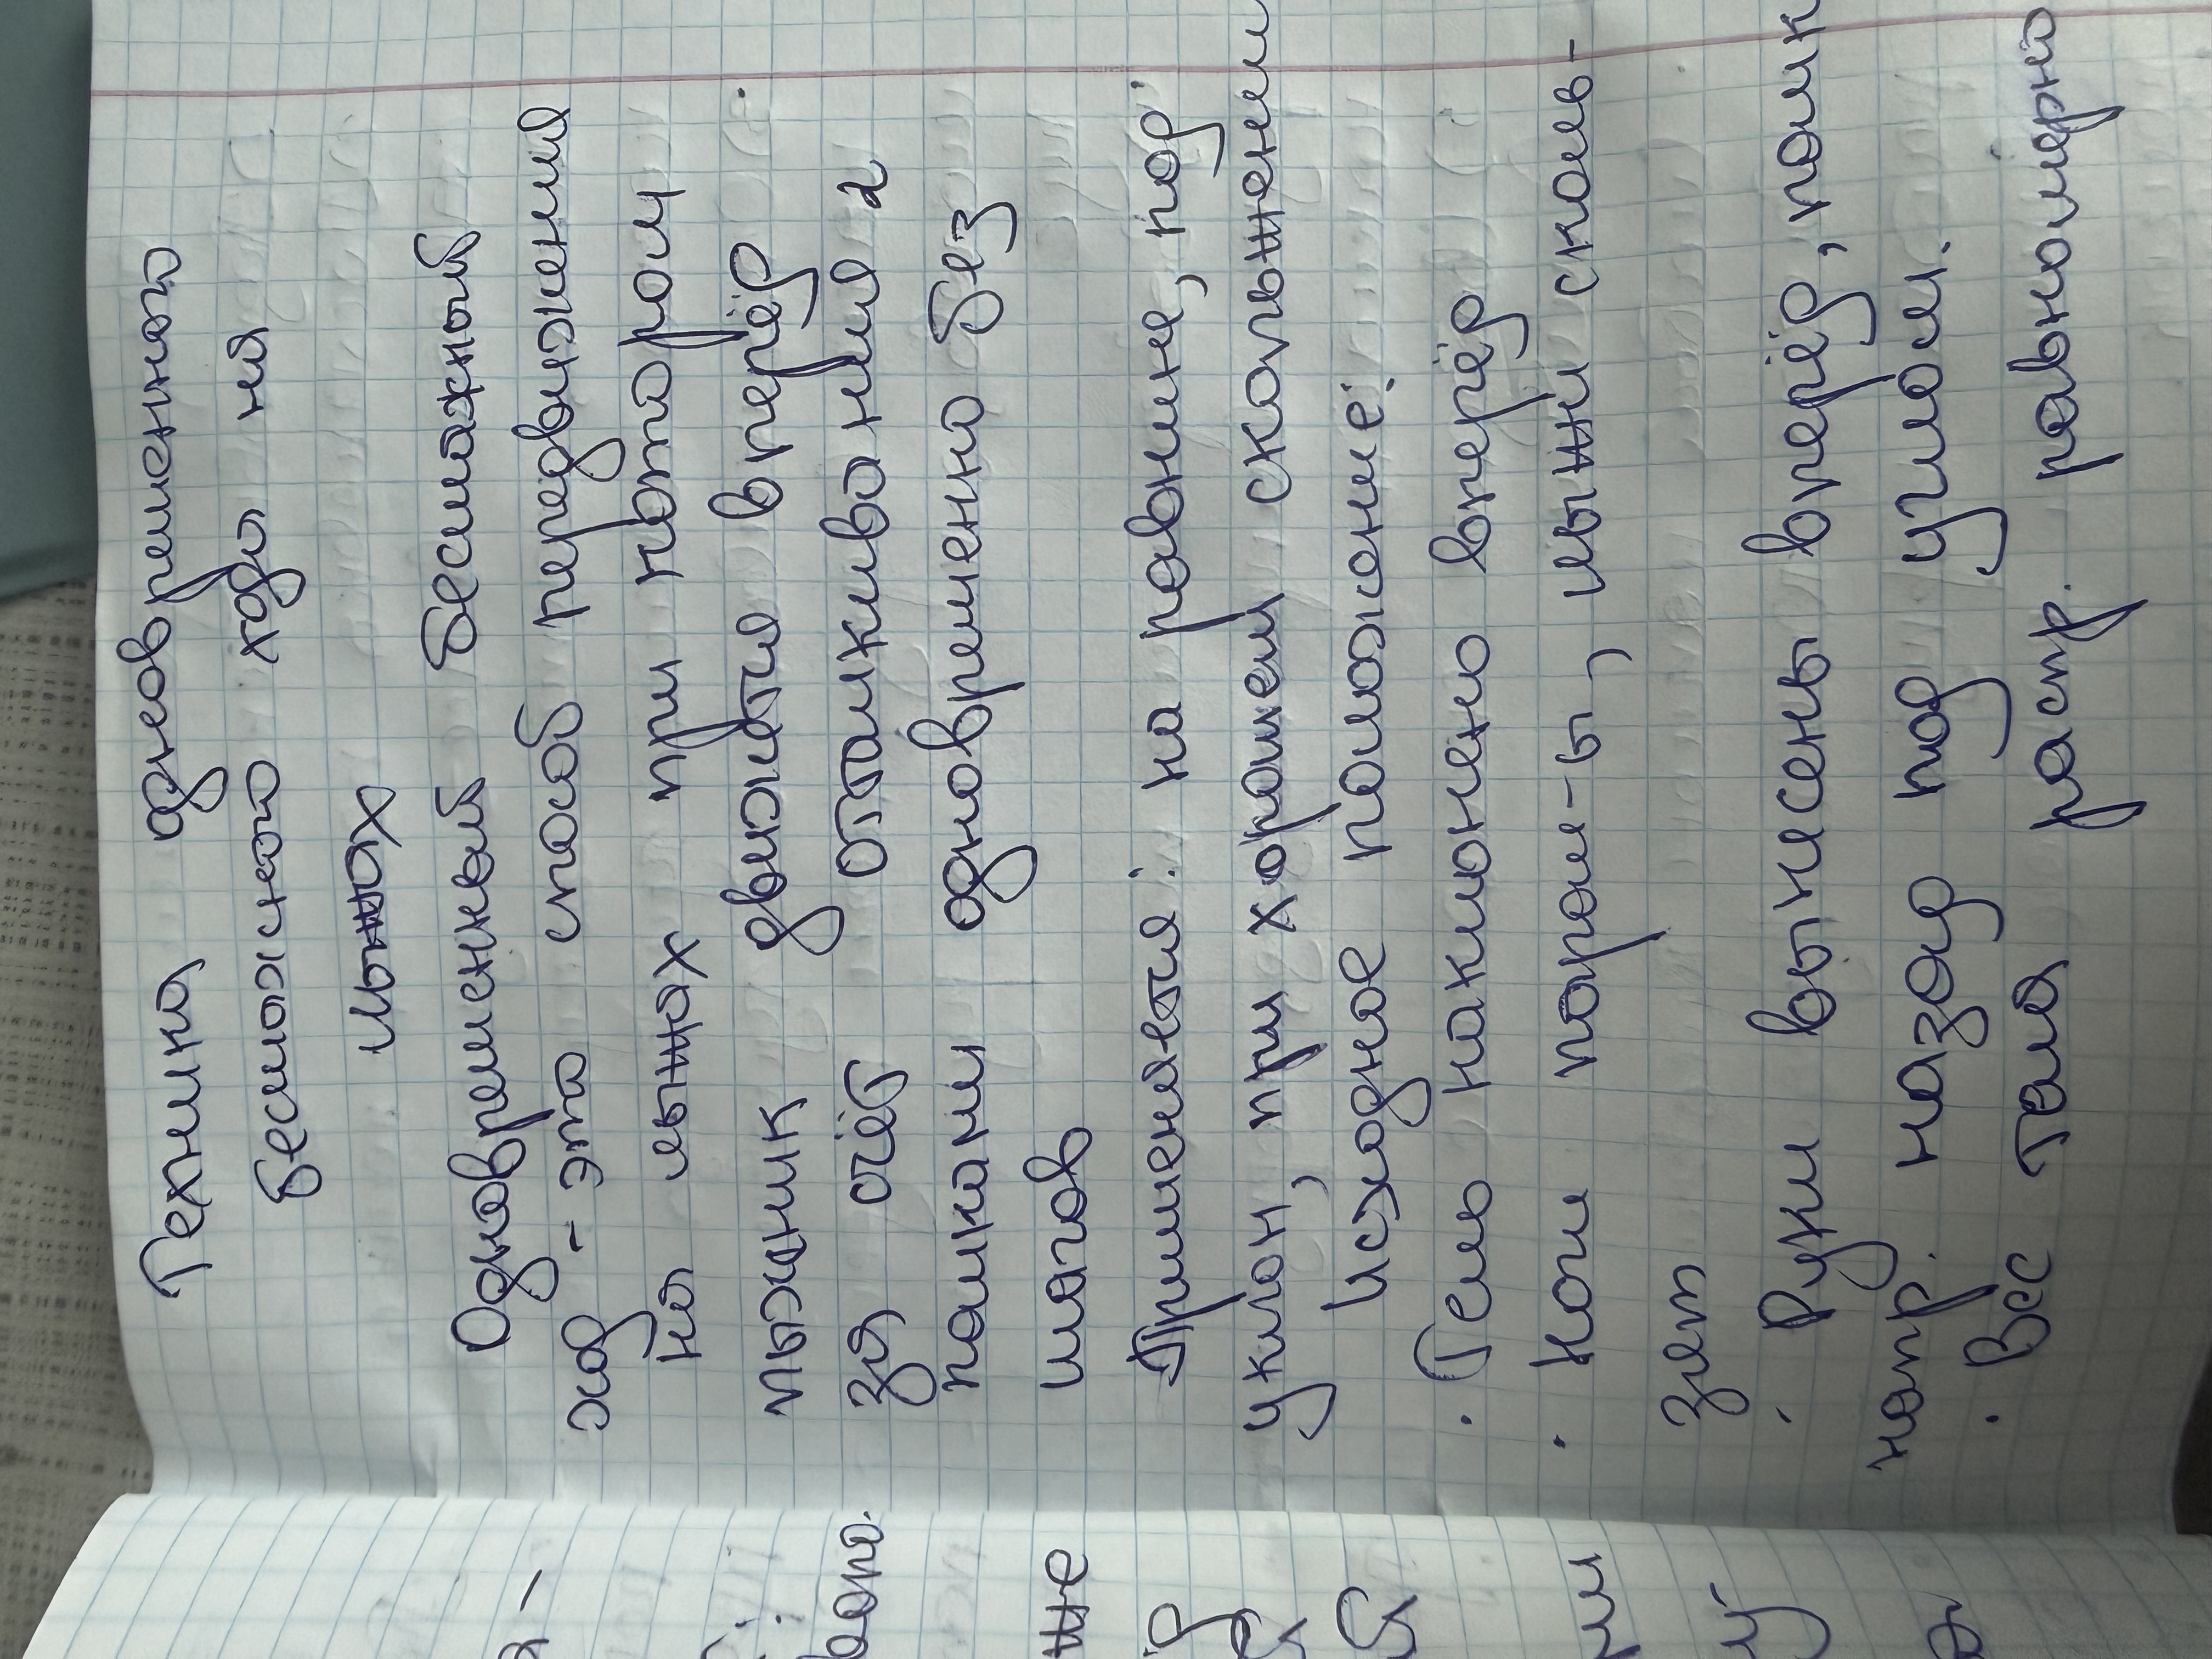 Техника одновременного
бесшажного хода на
лыжах
Одновременный бесшажный
ход - это способ передвижения
на лыжах при котором
лыжник движется вперёд
за счёт отталкивания 2
палками одновременно без
шагов
Применяется: на равнине, под
уклон, при хорошем скольжении
Исходное положение:
· Тело наклонено вперёд
· Ноги парал-ы, лыжи сколь-
зят
· Руки вынесены вперёд, палк
напр. назад под углом.
· Вес тела распр. равномерно